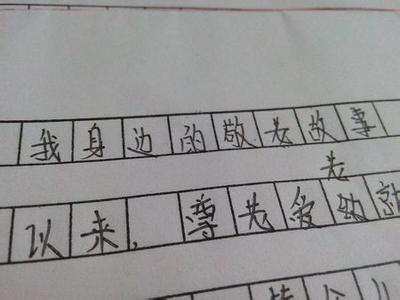 我身边的敬老故事
老
以来，尊先爱幼就